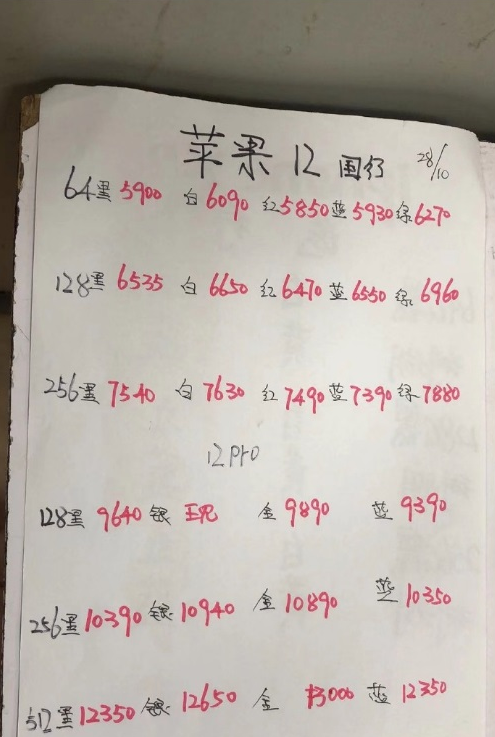 苹果 12 国行 28/10
64黑 5900 白 6090 红 5850 蓝 5930 绿 6270
128黑 6535 白 6650 红 6470 蓝 6550 绿 6960
256黑 7540 白 7630 红 7490 蓝 7390 绿 7880
12pro
128黑 9640 银 现 金 9890 蓝 9390
256黑 10390 银 10940 金 10890 蓝 10350
512黑 12350 银 12650 金 13000 蓝 12350